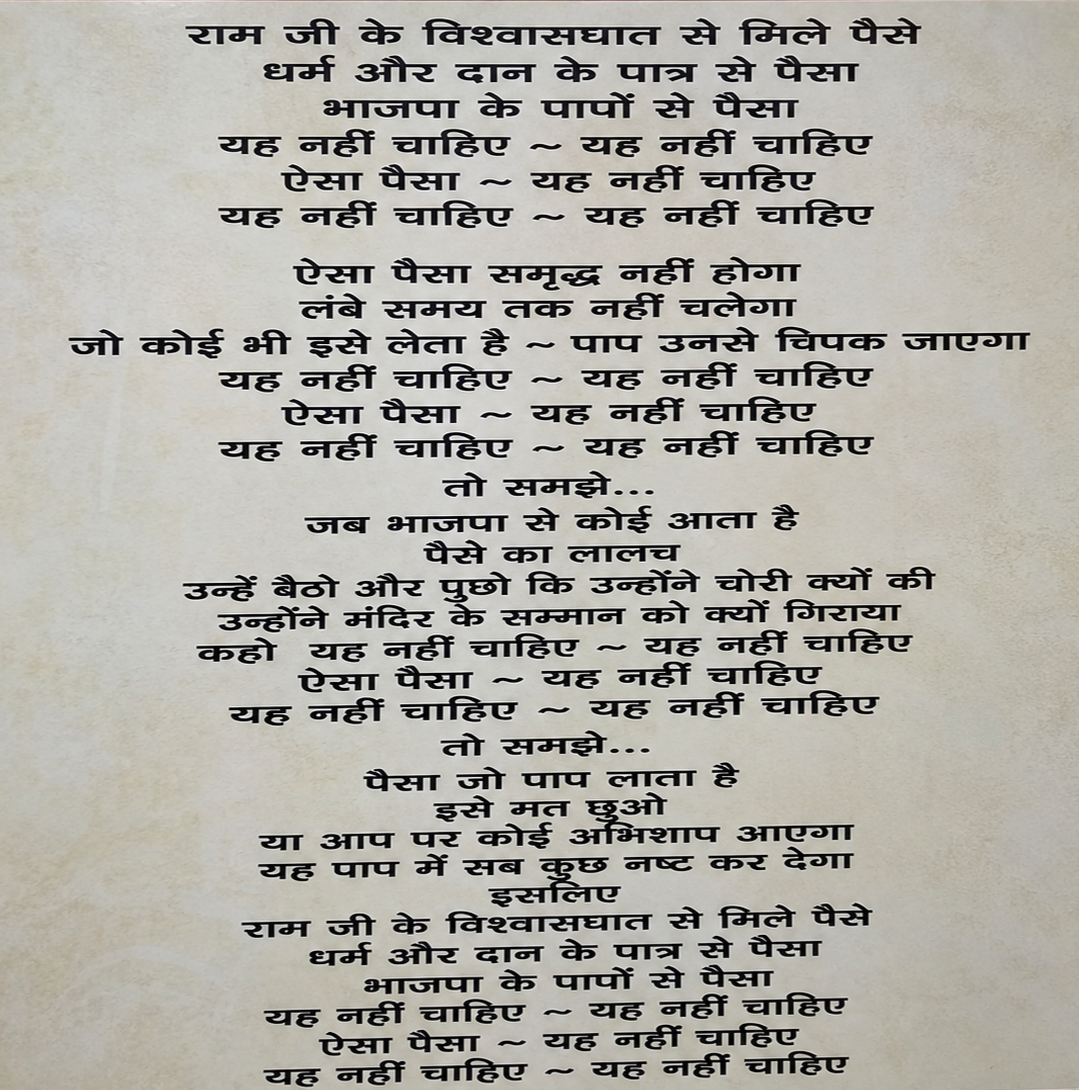 राम जी के विश्वासघात से मिले पैसे
धर्म और दान के पात्र से पैसा
भाजपा के पापों से पैसा
यह नहीं चाहिए ~ यह नहीं चाहिए
ऐसा पैसा ~ यह नहीं चाहिए
यह नहीं चाहिए ~ यह नहीं चाहिए
ऐसा पैसा समृद्ध नहीं होगा
लंबे समय तक नहीं चलेगा
जो कोई भी इसे लेता है ~ पाप उनसे चिपक जाएगा
यह नहीं चाहिए ~ यह नहीं चाहिए
ऐसा पैसा ~ यह नहीं चाहिए
यह नहीं चाहिए ~ यह नहीं चाहिए
तो समझे...
जब भाजपा से कोई आता है
पैसे का लालच
उन्हें बैठो और पुछो कि उन्होंने चोरी क्यों की
उन्होंने मंदिर के सम्मान को क्यों गिराया
कहो यह नहीं चाहिए ~ यह नहीं चाहिए
ऐसा पैसा ~ यह नहीं चाहिए
यह नहीं चाहिए ~ यह नहीं चाहिए
तो समझे...
पैसा जो पाप लाता है
इसे मत छुओ
या आप पर कोई अभिशाप आएगा
यह पाप में सब कुछ नष्ट कर देगा
इसलिए
राम जी के विश्वासघात से मिले पैसे
धर्म और दान के पात्र से पैसा
भाजपा के पापों से पैसा
यह नहीं चाहिए ~ यह नहीं चाहिए
ऐसा पैसा ~ यह नहीं चाहिए
यह नहीं चाहिए ~ यह नहीं चाहिए